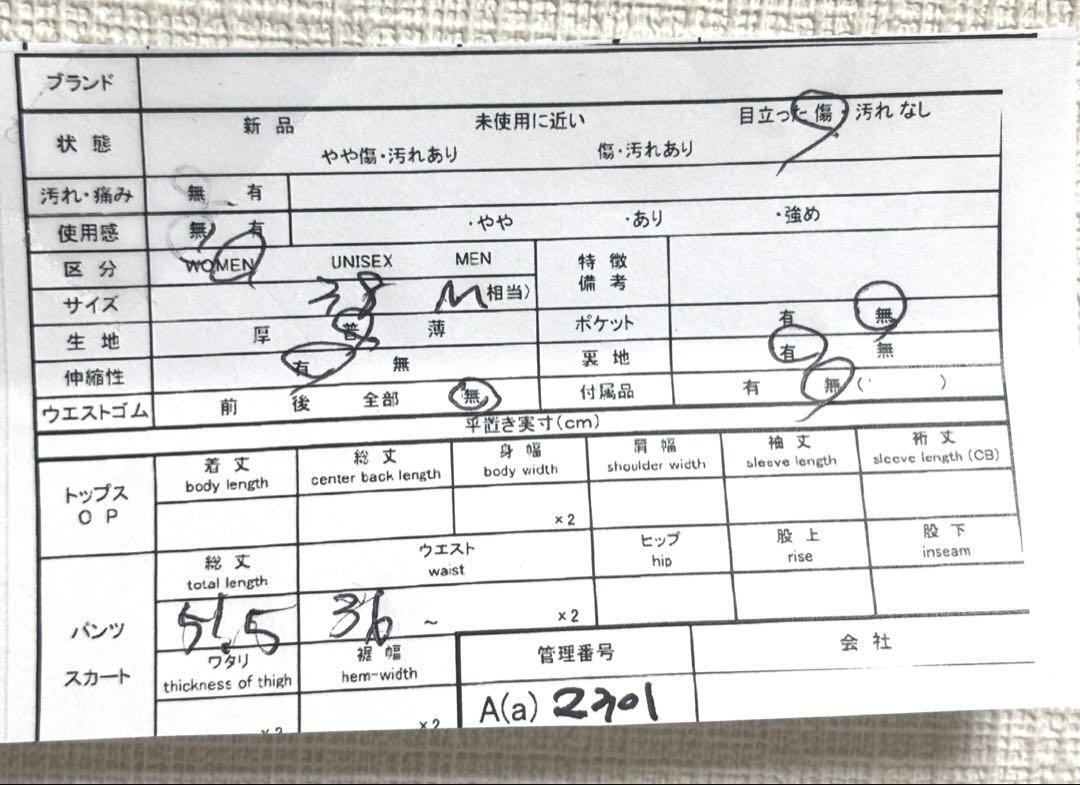 ブランド
状態 新品 未使用に近い 目立った傷・汚れなし
やや傷・汚れあり 傷・汚れあり
汚れ・痛み 無 有
使用感 無 有 ・やや ・あり ・強め
区分 WOMEN UNISEX MEN 特徴備考
サイズ 38 M 相当)
生地 厚 普 薄 ポケット 有 無
伸縮性 有 無 裏地 有 無
ウエストゴム 前 後 全部 無 付属品 有 無 ( )
平置き実寸(cm)
トップス OP
着丈 総丈 身幅 肩幅 袖丈 裄丈
body length center back length body width shoulder width sleeve length sleeve length (CB)
×2
パンツ スカート
総丈 ウエスト ヒップ 股上 股下
total length waist hip rise inseam
51.5 36 ~ ×2
ワタリ 裾幅 管理番号 会社
thickness of thigh hem-width
×2 ×2 A(a) 2301